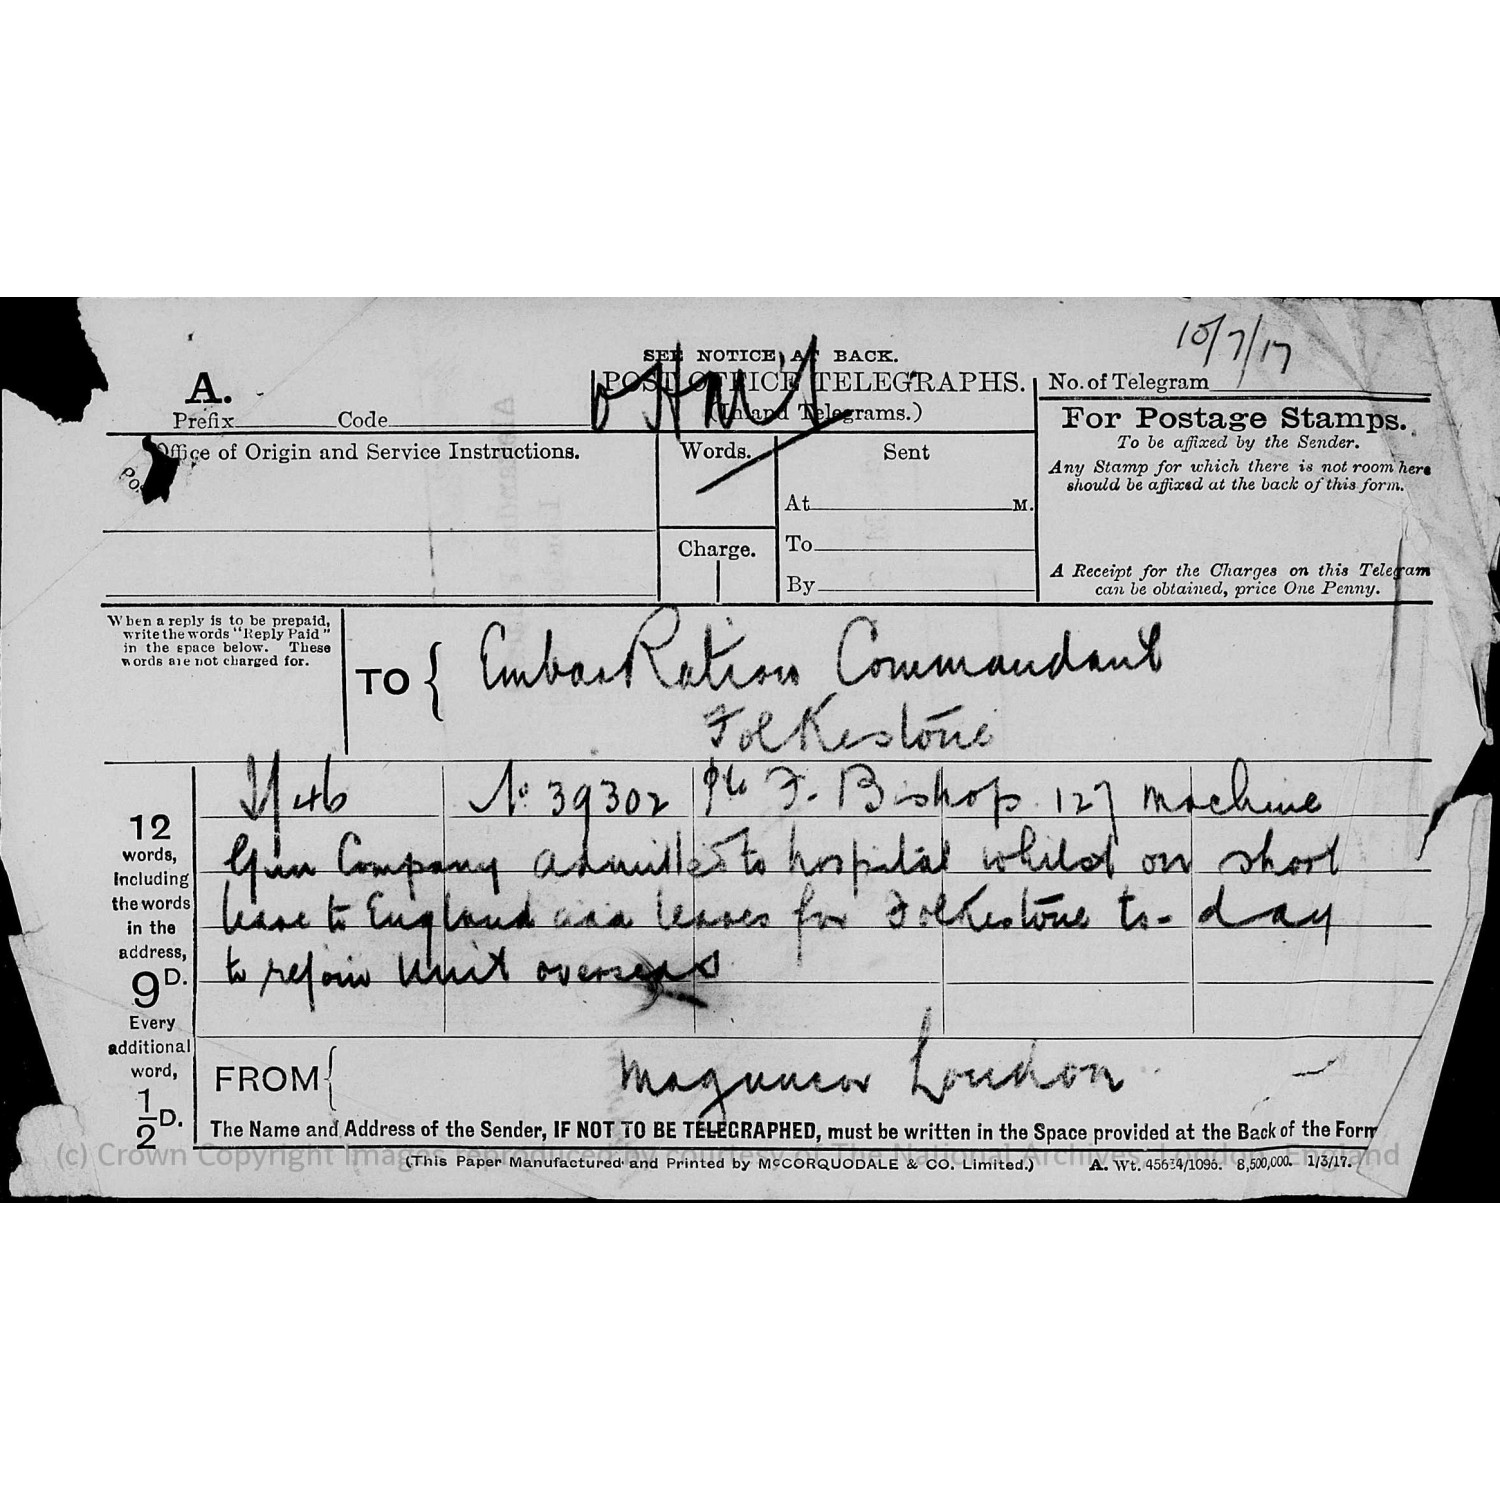 10/7/17
SEE NOTICE AT BACK.
A. POST OFFICE TELEGRAPHS. No. of Telegram
Prefix Code (Inland Telegrams.)
For Postage Stamps.
To be affixed by the Sender.
Any Stamp for which there is not room here
should be affixed at the back of this form.
A Receipt for the Charges on this Telegram
can be obtained, price One Penny.
Office of Origin and Service Instructions.
Words.
Sent
At M.
To
By
Charge.
When a reply is to be prepaid,
write the words "Reply Paid"
in the space below. These
words are not charged for.
TO { Embarkation Commandant
Folkestone
/46 No 39302 Pte F. Bishop 127 Machine
Gun Company admitted to hospital whilst on short
leave to England leaves for Folkestone to-day
to rejoin Unit overseas
12
words,
including
the words
in the
address,
9D.
Every
additional
word,
1/2D.
FROM { London
The Name and Address of the Sender, IF NOT TO BE TELEGRAPHED, must be written in the Space provided at the Back of the Form
(This Paper Manufactured and Printed by McCORQUODALE & CO. Limited.) A. Wt. 45634/1096. 8,500,000. 1/3/17.
(c) Crown Copyright Images reproduced by courtesy of The National Archives, London, England